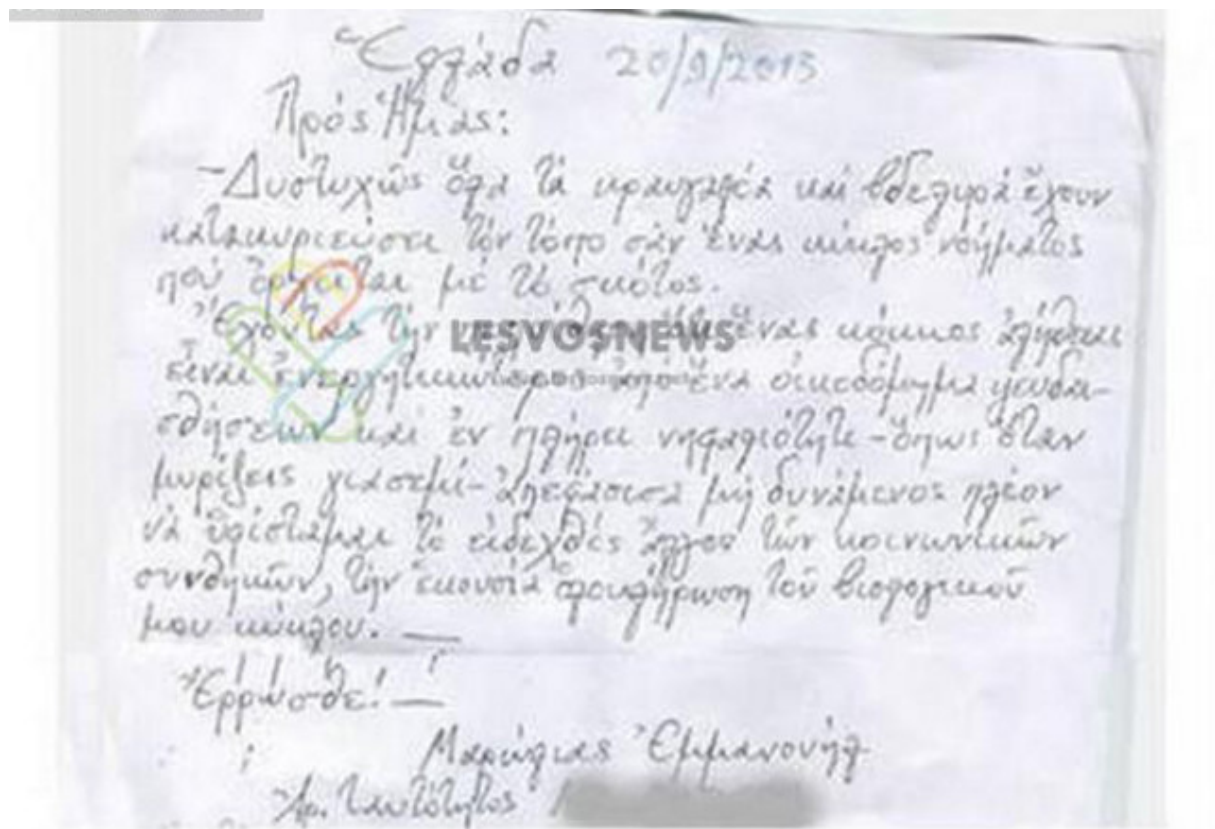 Ἑλλάδα 20/9/2013
Πρός Ἡμᾶς:
- Δυστυχῶς ὅλα τά κραυγαλέα καί βδελυρά ἔχουν
κατακυριεύσει τόν τόπο σάν ἕνας κύκλος νοήματος
πού ἔρχεται μέ τό σκότος.
Ἔχοντας τήν ἕνας κόκκος ἀλήθειας
LESVOSNEWS
εἶναι ἐνεργητικώτερος ἀπό ἕνα οἰκοδόμημα ψευδαι-
σθήσεων καί ἐν πλήρει νηφαλιότητι - ὅπως ὅταν
μυρίζεις γιασεμί - ἀπεφάσισα μή δυνάμενος πλέον
νά ὑφίσταμαι τό εἰδεχθές ἄλγος τῶν κοινωνικῶν
συνθηκῶν, τήν ἑκουσία ὁλοκλήρωση τοῦ βιολογικοῦ
μου κύκλου. —
Ἔρρωσθε! —
Μαρύλιας Ἐμμανουήλ
Ἀρ. ταυτότητος